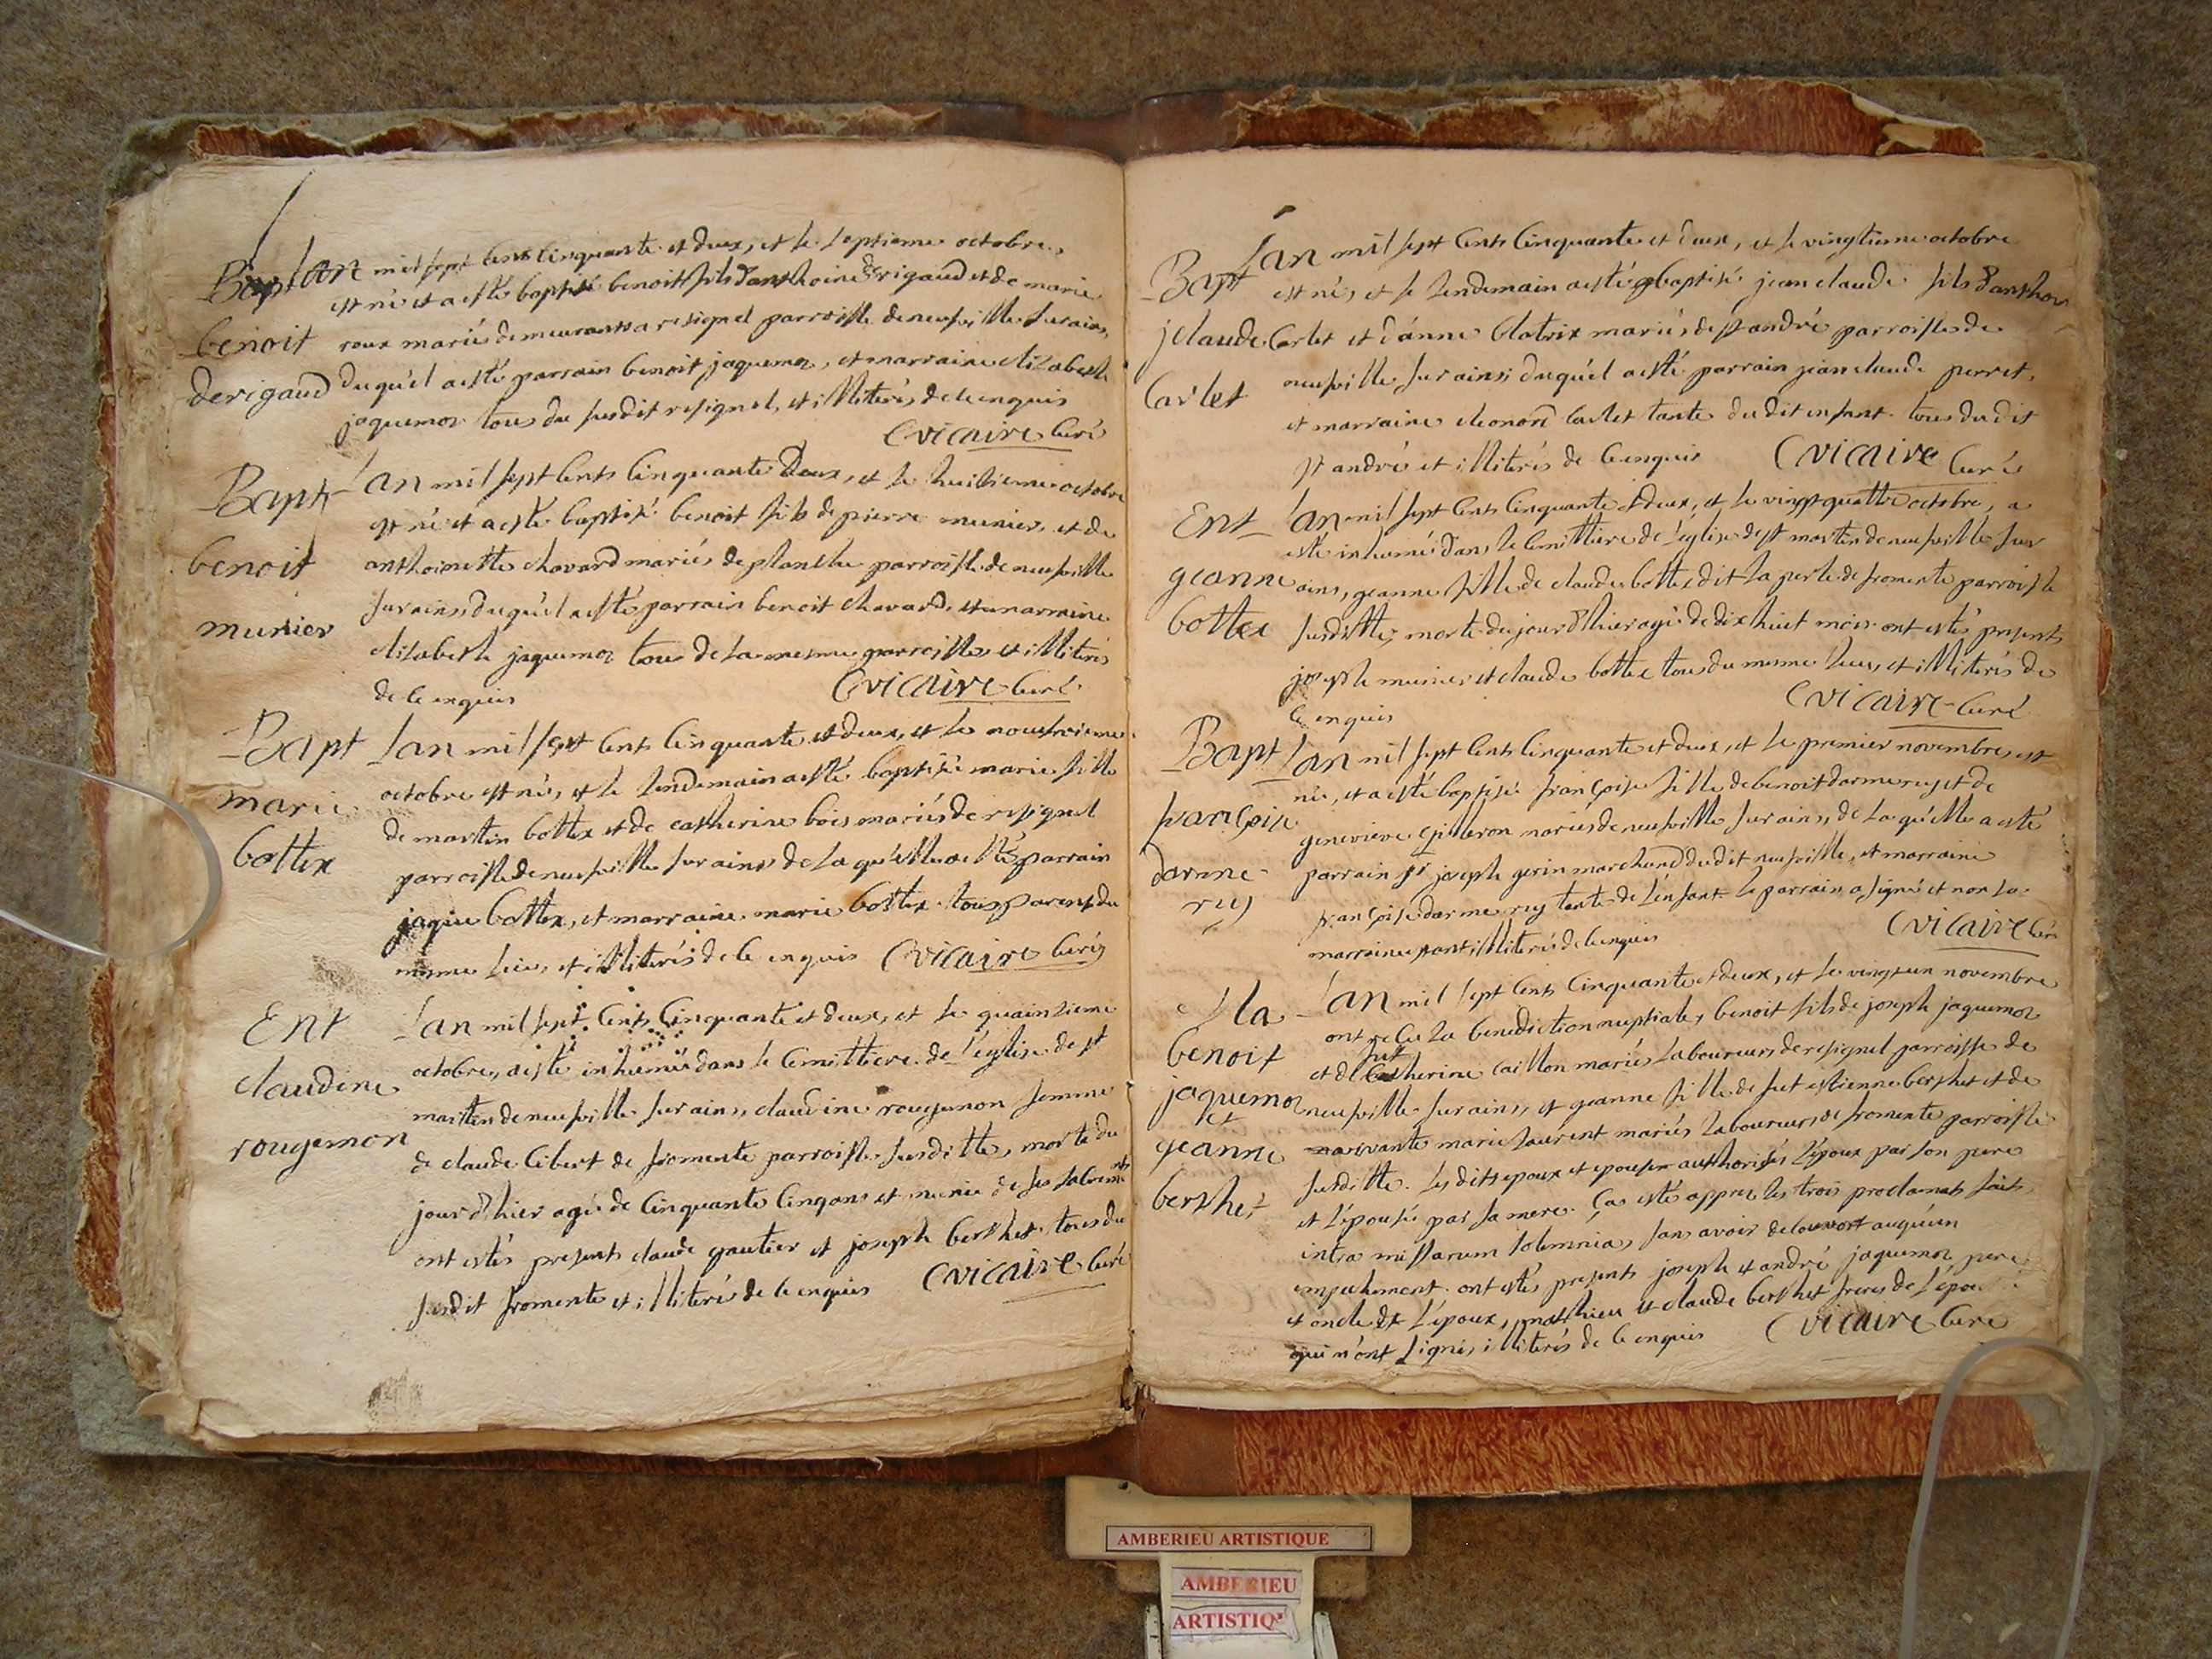 Bapt
benoit
derigaud
Lan mil sept cents cinquante et deux, et le septieme octobre,
est né et a esté baptisé benoit fils danthoine derigaud et de marie
roux mariés demeurants a resignel parroisse de neufville sur ains,
duquel a esté parrain benoit jaquemoz, et marraine elizabeth
jaquemoz tous du susdit resignel, et illiterés de ce enquis
C vicaire curé
Bapt
benoit
munier
Lan mil sept cents cinquante deux, et le huitieme octobre
est né et a esté baptisé benoit fils de pierre munier, et de
anthoinette chavard mariés de planche parroisse de neufville
sur ains, duquel a esté parrain benoit chavard, et marraine
elizabeth jaquemoz tous de la mesme parroisse, et illiterés
de ce enquis
C vicaire curé
Bapt
marie
bottex
Lan mil sept cents cinquante et deux, et le
octobre est née, et le lendemain a esté baptisée marie fille
de martin bottex et de catherine bois mariés de resignel
parroisse de neufville sur ains de la quelle a esté parrain
jaque bottex, et marraine marie bottex tous parents du
mesme lieu, et illiterés de ce enquis C vicaire curé
Ent
claudine
rougemon
Lan mil sept cents cinquante et deux, et le quainzieme
octobre, a esté inhumée dans le cimittiere de l'eglise de st
martin de neufville sur ains, claudine rougemon femme
de claude Cibert de fromente parroisse susditte, morte du
jour d'hier agée de cinquante cinq ans et munie de ses sacrements
ont estés presents claude gautier et joseph berthet tous du
susdit fromente et illiterés de ce enquis C vicaire curé
Bapt
j claude
Carlet
Lan mil sept cents cinquante et deux, et le vingtieme octobre
est né, et le lendemain a esté baptisé jean claude fils d'anthoi
Carlet et d'anne Clatrix mariés de st andré parroisse de
neufville sur ains; duquel a esté parrain jean claude perret,
et marraine eleonore Carlet tante dudit enfant tous du dit
st andré et illiterés de ce enquis C vicaire curé
Ent
geanne
bottex
Lan mil sept cents cinquante et deux, et le vingt quattre octobre, a
esté inhumée dans le cimittiere de l'eglise de st martin de neufville sur
ains, geanne fille de claude bottex dit la perle de fromente parroisse
susditte; morte du jour d'hier agée de dix huit mois ont estés presents
joseph munier et claude bottex tous du mesme lieu, et illiterés de
ce enquis
C vicaire curé
Bapt
françoise
darme-
rey
Lan mil sept cents cinquante et deux, et le premier novembre, est
née, et a esté baptisée françoise fille de benoit darmerey et de
genevieve gilleron mariés de neufville sur ains, de la quelle a esté
parrain sr joseph gerin marchand dudit neufville, et marraine
françoise darmerey tante de l'enfant le parrain a signé et non la
marraine illiterés de ce enquis
C vicaire curé
Ma
benoit
jaquemoz
et
geanne
berthet
Lan mil sept cents cinquante et deux, et le vingt un novembre
ont reçu la benediction nuptiale, benoit fils de joseph jaquemoz
fut
et de Catherine caillon mariés laboureurs de resignel parroisse de
neufville sur ains, et geanne fille de fut estienne berthet et de
vivante marie laurent mariés laboureurs de fromente parroisse
susditte. les dits epoux et epouse authorisés l'epoux par son pere
et l'epouse par sa mere. ça esté apprez les trois proclamats faits
intra missarum solemnia, sans avoir decouvert auquun
empechement. ont estés presents joseph et andré jaquemoz pere
et oncle de l'epoux, mathieu et claude berthet freres de l'epou
qui n'ont signés, illiterés de ce enquis C vicaire curé
AMBERIEU ARTISTIQUE
AMBERIEU
ARTISTIQ